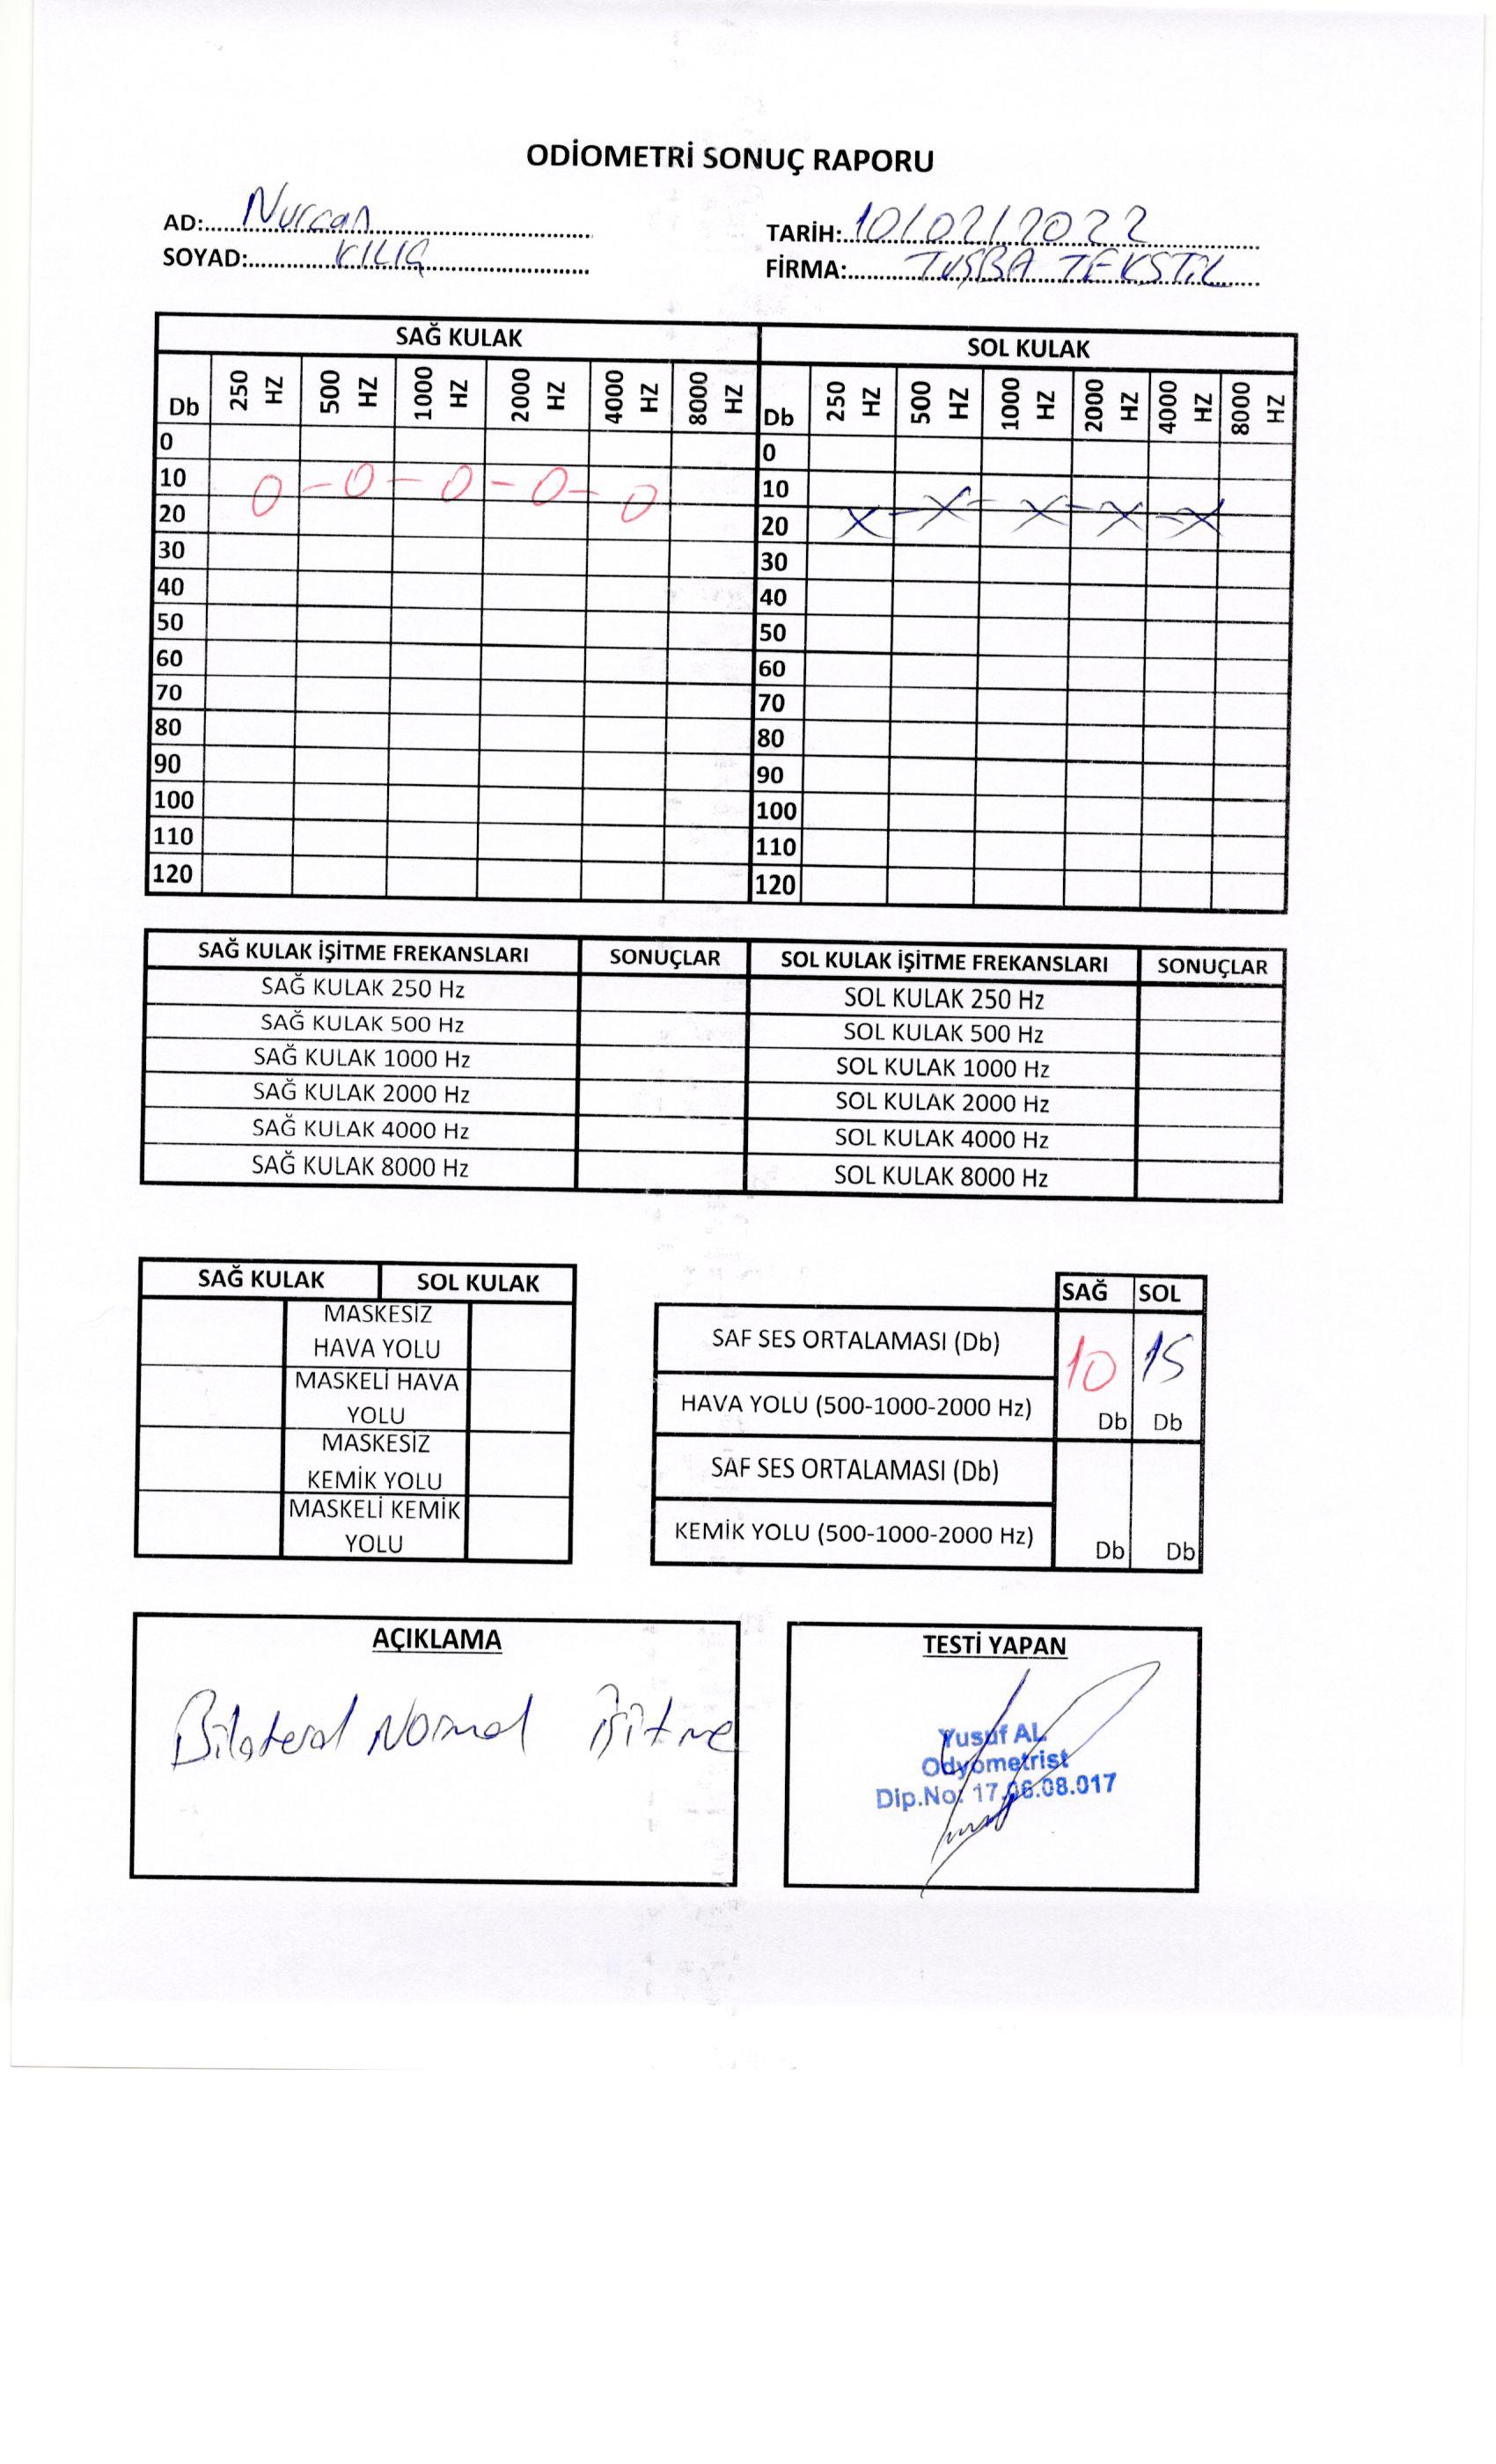 ODİOMETRİ SONUÇ RAPORU
AD: Nurcan
TARİH: 10/02/2022
SOYAD: KILIÇ
FİRMA: TUŞBA TEKSTİL
SAĞ KULAK SOL KULAK
Db 250 HZ 500 HZ 1000 HZ 2000 HZ 4000 HZ 8000 HZ Db 250 HZ 500 HZ 1000 HZ 2000 HZ 4000 HZ 8000 HZ
0 0
10 O - O - O - O - O 10
20 20 X - X - X - X - X
30 30
40 40
50 50
60 60
70 70
80 80
90 90
100 100
110 110
120 120
SAĞ KULAK İŞİTME FREKANSLARI SONUÇLAR SOL KULAK İŞİTME FREKANSLARI SONUÇLAR
SAĞ KULAK 250 Hz SOL KULAK 250 Hz
SAĞ KULAK 500 Hz SOL KULAK 500 Hz
SAĞ KULAK 1000 Hz SOL KULAK 1000 Hz
SAĞ KULAK 2000 Hz SOL KULAK 2000 Hz
SAĞ KULAK 4000 Hz SOL KULAK 4000 Hz
SAĞ KULAK 8000 Hz SOL KULAK 8000 Hz
SAĞ KULAK SOL KULAK
MASKESİZ
HAVA YOLU
MASKELİ HAVA
YOLU
MASKESİZ
KEMİK YOLU
MASKELİ KEMİK
YOLU
SAĞ SOL
SAF SES ORTALAMASI (Db) 10 15
HAVA YOLU (500-1000-2000 Hz) Db Db
SAF SES ORTALAMASI (Db)
KEMİK YOLU (500-1000-2000 Hz) Db Db
AÇIKLAMA
Bilateral Normal İşitme
TESTİ YAPAN
Yusuf AL
Odyometrist
Dip.No: 17.06.08.017